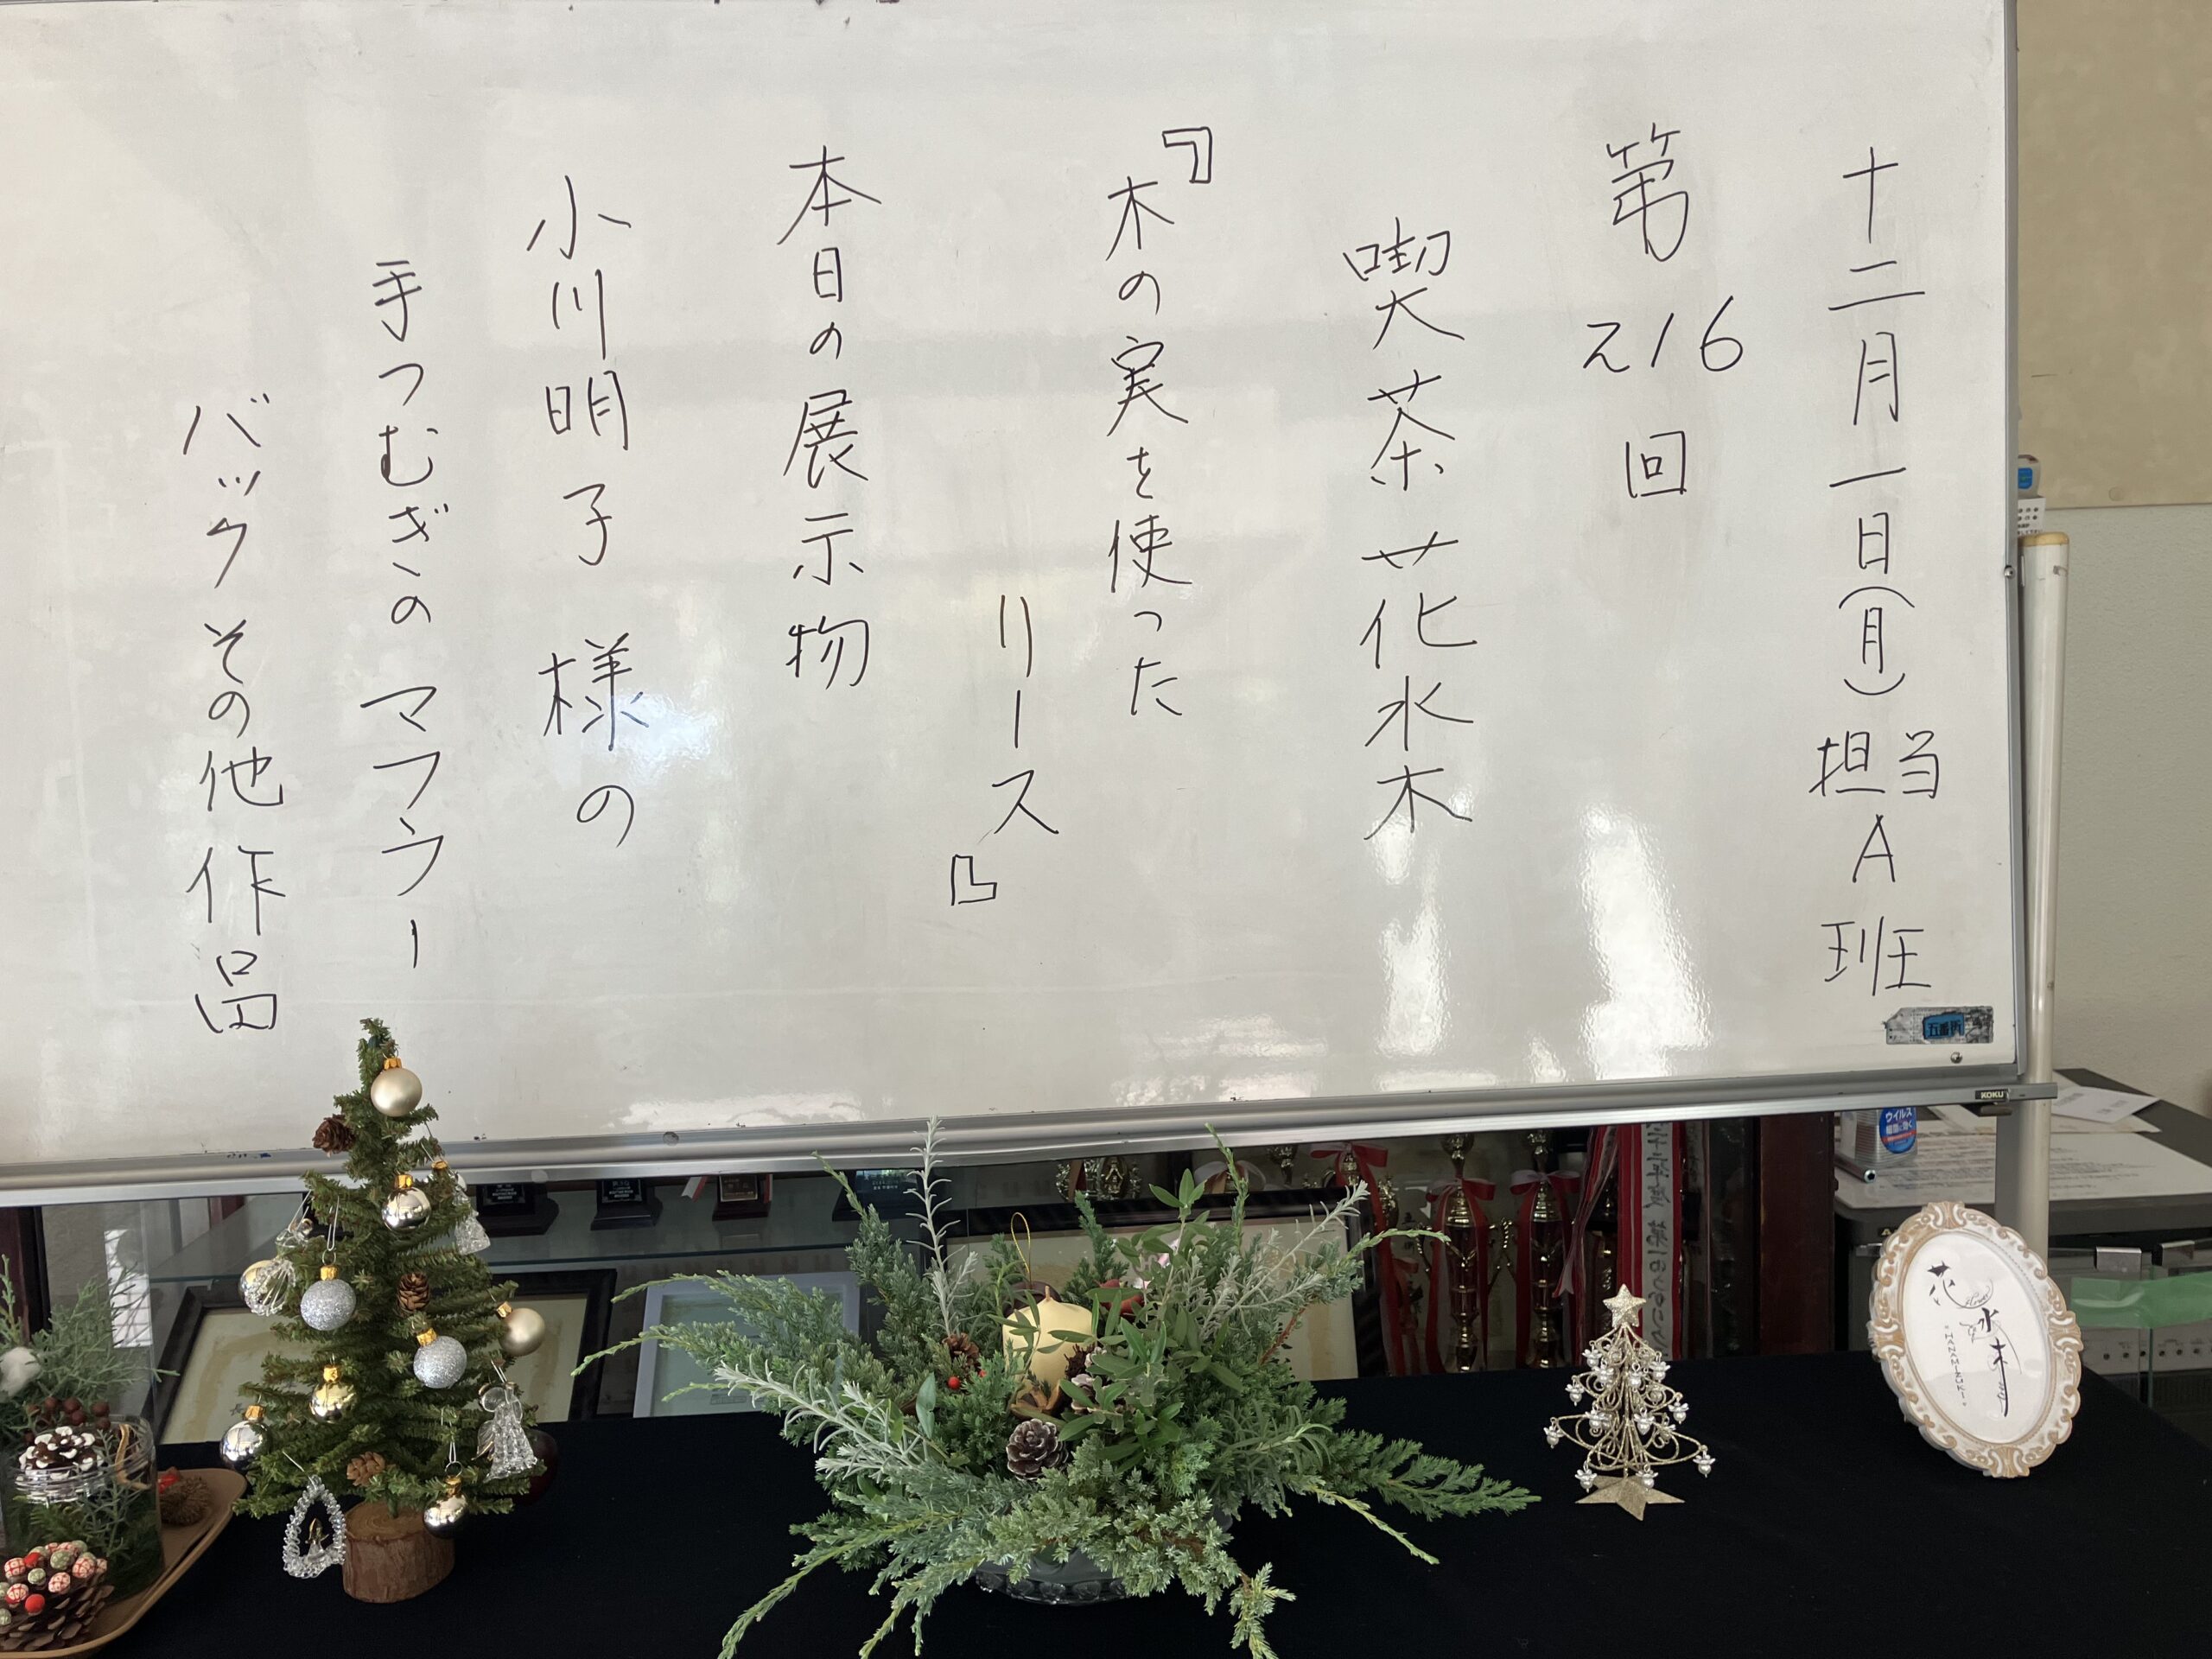 十二月一日(月)担当A班
第216回
喫茶花水木
『木の実を使った
リース』
本日の展示物
小川明子様の
手つむぎのマフラー
バックその他作品
五番町
KOKU
ウイルス
花水木
"HANAMIZUKI"